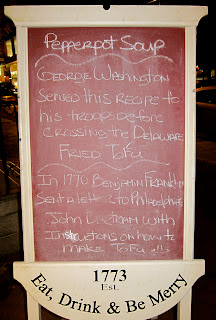 Pepperpot Soup
George Washington
Served this recipe to
his troops before
crossing the Delaware
Fried Tofu
In 1770 Benjamin Franklin
sent a letter to Philadelphia's
John Bartram with
Instructions on how to
make Tofu !!!
1773
Est.
Eat, Drink & Be Merry